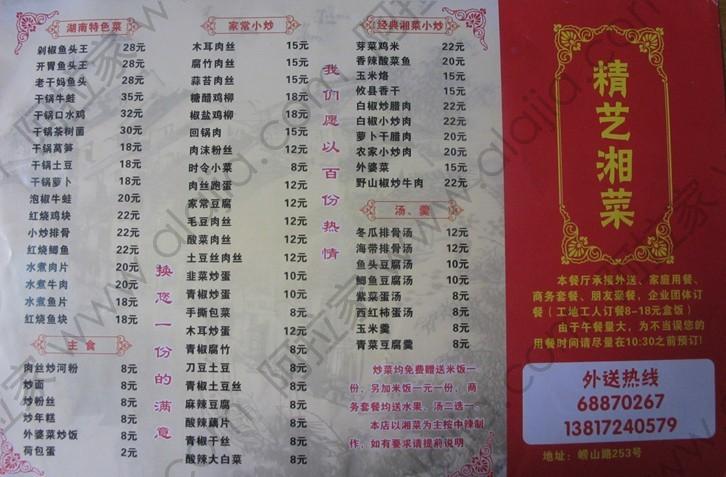 湖南特色菜
剁椒鱼头王 28元
开胃鱼头王 28元
老干妈鱼头 28元
干锅牛蛙 35元
干锅口水鸡 32元
干锅茶树菌 30元
干锅莴笋 18元
干锅土豆 18元
干锅萝卜 18元
泡椒牛蛙 20元
红烧鸡块 22元
小炒排骨 22元
红烧鲫鱼 22元
水煮肉片 20元
水煮牛肉 20元
水煮鱼片 20元
红烧鱼块 18元
主食
肉丝炒河粉 8元
炒面 8元
炒粉丝 8元
炒年糕 8元
外婆菜炒饭 8元
荷包蛋 2元
家常小炒
木耳肉丝 15元
腐竹肉丝 15元
蒜苔肉丝 15元
糖醋鸡柳 18元
椒盐鸡柳 18元
回锅肉 15元
肉沫粉丝 12元
时令小菜 8元
肉丝跑蛋 12元
家常豆腐 12元
毛豆肉丝 12元
酸菜肉丝 12元
土豆丝肉丝 12元
韭菜炒蛋 10元
青椒炒蛋 10元
手撕包菜 8元
木耳炒蛋 12元
青椒腐竹 8元
刀豆土豆 8元
青椒土豆丝 8元
麻辣豆腐 8元
酸辣藕片 8元
青椒干丝 8元
酸辣大白菜 8元
我们愿以百份热情
换您一份的满意
经典湘菜小炒
芽菜鸡米 22元
香辣酸菜鱼 20元
玉米烙 15元
攸县香干 15元
白椒炒腊肉 22元
白椒小炒肉 22元
萝卜干腊肉 20元
农家小炒肉 20元
外婆菜 15元
野山椒炒牛肉 22元
汤、羹
冬瓜排骨汤 12元
海带排骨汤 12元
鱼头豆腐汤 10元
鲫鱼豆腐汤 10元
紫菜蛋汤 8元
西红柿蛋汤 8元
玉米羹 8元
青菜豆腐羹 8元
炒菜均免费赠送米饭一
份、另加米饭一元一份,商
务套餐均送水果、汤二选一
本店以湘菜为主按中辣制
作,如有要求请提前说明
精艺湘菜
本餐厅承接外送、家庭用餐、
商务套餐、朋友聚餐、企业团体订
餐(工地工人订餐8-18元盒饭)
由于午餐量大,为不当误您的
用餐时间请尽量在10:30之前预订!
外送热线
68870267
13817240579
地址:崂山路253号
阿拉家 www.alajia.com